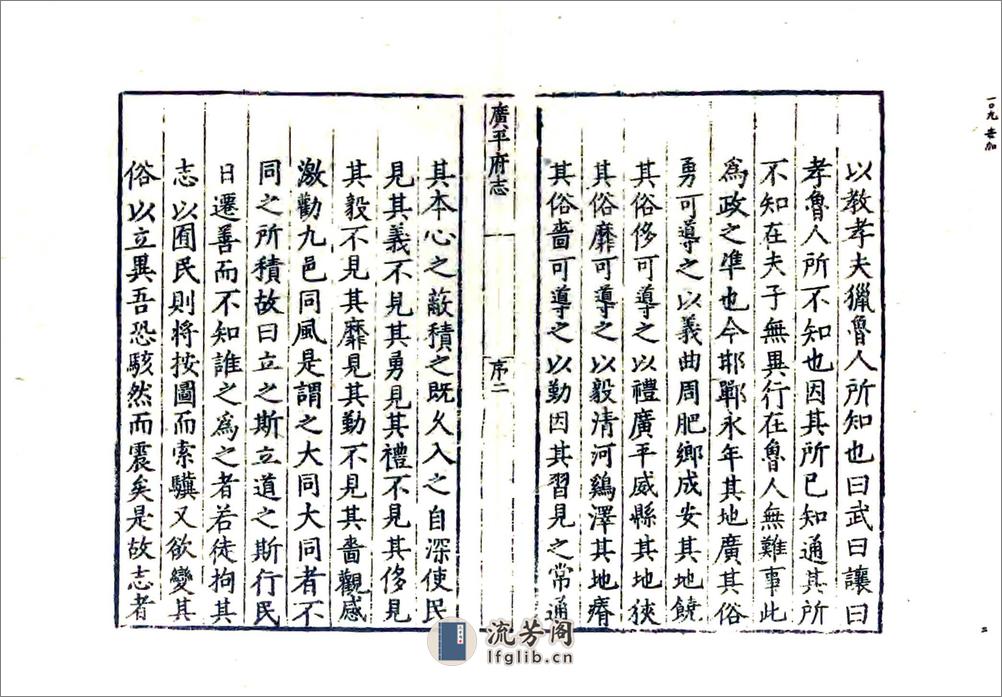 以教孝夫獵魯人所知也曰武曰讓曰
孝魯人所不知也因其所已知通其所
不知在夫子無異行在魯人無難事此
爲政之準也今邯鄲永年其地廣其俗
勇可導之以義曲周肥鄉成安其地饒
其俗侈可導之以禮廣平威縣其地狹
其俗靡可導之以毅清河鷄澤其地瘠
其俗嗇可導之以勤因其習見之常通
廣平府志
序二
其本心之蔽積之既久入之自深使民
見其義不見其勇見其禮不見其侈見
其毅不見其靡見其勤不見其嗇觀感
激勸九邑同風是謂之大同大同者不
同之所積故曰立之斯立道之斯行民
日遷善而不知誰之爲之者若徒拘其
志以囿民則將按圖而索驥又欲變其
俗以立異吾恐駭然而震矣是故志者
一〇九
二
流芳阁
lfglib.cn